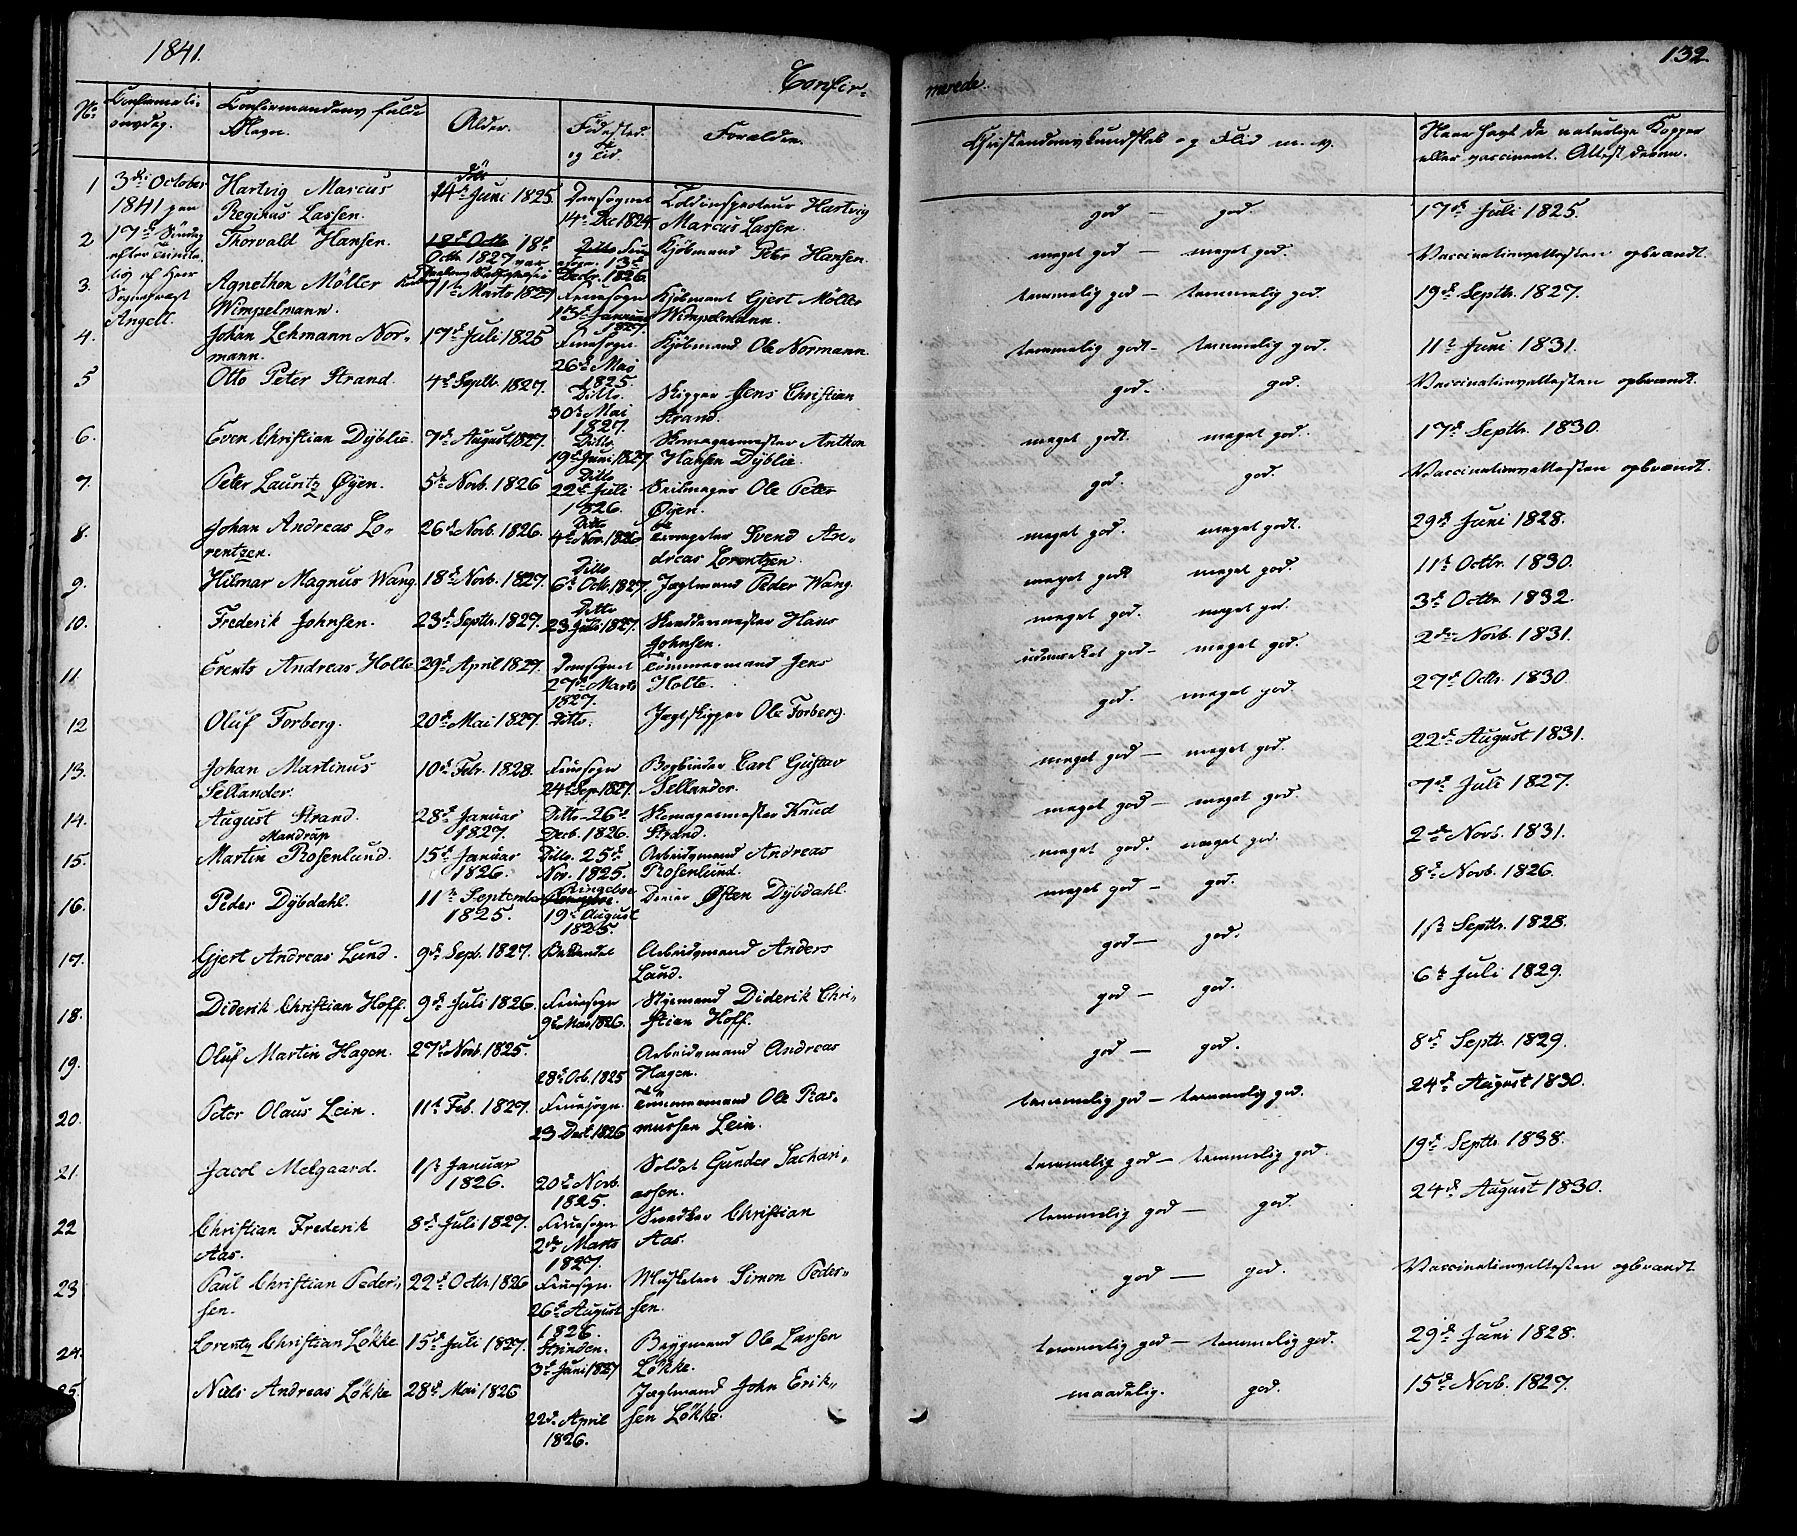 1841.
132
Confir=
merede.
No
Confirmati=
onsdag.
Confirmandens fulde
Navn.
Alder.
Födested
og Tid.
Forældre.
Christendomskundskab og Flid m. v.
Have havt de naturlige Kopper
eller vaccineret. Attest derom.
1 3die October Hartvig Marcus 14de Juni 1825. Domsognet Toldinspecteur Hartvig
1841 paa Reginus Lassen. 14de Dec 1824. Marcus Lassen.
god — god. 17de Juli 1825.
2 17de Söndag Thorvald Hansen. 18de Octb 18de Ditto Kjöbmand Peter Hansen.
efter Trinita- Octb. 1827 Decbr. 1826.
meget god — meget god. Vaccinationsattesten opbrandt.
3. tis af Herr Agnethon Möller 11te Marts 1827 Fruesogn Kjöbmand Gjert Möller
Sognepræst Wimpelmann. 13de Januar 1827. Wimpelmann.
Angell.
temmelig god — temmelig god. 19de Septbr. 1827.
4. Johan Lehmann Nor= 17de Juli 1825 Fruesogn Kjöbmand Ole Normann.
mann. 26de Mai 1825.
temmelig godt — temmelig god. 11te Juni 1831.
5 Otto Peter Strand. 4de Septb. 1827. Ditto. Skipper Jens Christian
30te Mai 1827. Strand.
god. god. Vaccinationsattesten opbrandt.
6. Even Christian Dÿblie. 7de August 1827. Ditto Skomagermester Anthon
19de Juni 1827. Hansen Dÿblie.
meget godt. meget god. 17de Septbr. 1830.
7. Peter Lauritz Öyen. 5te Novb. 1826 Ditto Seilmager Ole Peter
22de Juli 1826. Öyen.
god. god. Vaccinationsattesten opbrandt.
8. Johan Andreas Lo= 26de Novb. 1826. Ditto Svend An=
rentzen. 4de Nov. 1826 dreas Lorentzen.
meget god. meget godt. 29de Juni 1828.
9. Hilmar Magnus Wang. 18de Novb. 1827. Ditto Jægtmand Peder Wang.
6te Octb. 1827.
meget godt meget god. 11te Octbr. 1830.
10. Frederik Johnsen. 23de Septbr. 1827. Ditto Skreddermester Hans
23 Juli 1827. Johnsen.
meget god. meget god. 3de Octbr 1832.
11. Erents Andreas Holte 29de April 1827. Domsognet Tömmermand Jens
27de Marts 1827. Holte.
udmerket god — meget god. 2den Novb. 1831.
12 Oluf Forberg. 20de Mai 1827. Ditto. Jægtskipper Ole Forberg.
god. meget god. 27de Octbr. 1830.
13. Johan Martinus 10de Febr. 1828. Fruesogn Bogbinder Carl Gustav
Sellander. 24de Sep. 1827. Sellander.
meget god — meget god. 22de August 1831.
14. August Strand. 28de Januar Ditto — 26de Skomagermester Knud
1827. Decb. 1826. Strand.
meget god — meget god. 7de Juli 1827.
15. Mandrup
Martin Rosenlund. 15de Januar Ditto. 25de Arbeidsmand Andreas
1826. Nov. 1825. Rosenlund.
meget god. meget god. 2den Novb. 1831.
16. Peder Dÿbdahl. 11te September Ringeboe Östen Dÿbdahl.
1825. 19de August 1825.
meget god — god. 8de Novb. 1826.
17. Gjert Andreas Lund. 9de Sept. 1827. Arbeidsmand Anders
Lund.
god — god. 1ste Septbr. 1828.
18. Diderik Christian Hoff. 9de Juli 1826. Fruesogn Styrmand Diderik Chri=
9de Mai 1826. stian Hoff.
god — god. 6te Juli 1829.
19. Oluf Martin Hagen. 27de Novb. 1825. Arbeidsmand Andreas
28de Octb. 1825 Hagen.
god — god. 8de Septbr. 1829.
20. Peter Olaus Lein. 11te Feb. 1827. Fruesogn Tömmermand Ole Ras=
23 Decb. 1826 mussen Lein.
temmelig god — temmelig god. 24de August 1830.
21. Jacob Melgaard. 1ste Januar Soldat Gunder Zachari=
1826. 20de Novb. 1825. assen.
temmelig god — temmelig god. 19de Septbr. 1838.
22 Christian Frederik 8de Juli 1827. Fruesogn Snedker Christian
Aas. 2den Marts 1827. Aas.
temmelig god — god. 24de August 1830.
23 Paul Christian Peder= 22de Octbr. 1826 Fruesogn. Musketeer Simon Peder=
sen. 26de August 1826. sen.
god — god. Vaccinationsattesten opbrandt
24. Lorentz Christian Lökke 15de Juli 1827. Strinden. Bÿgmand Ole Larsen
3de Juni 1827 Lökke.
temmelig god — temmelig god. 29de Juni 1828.
25. Niels Andreas Lökke 28de Mai 1826 Jægtmand John Erik=
22de April 1826. sen Lökke.
maadelig. god. 15de Novb. 1827.